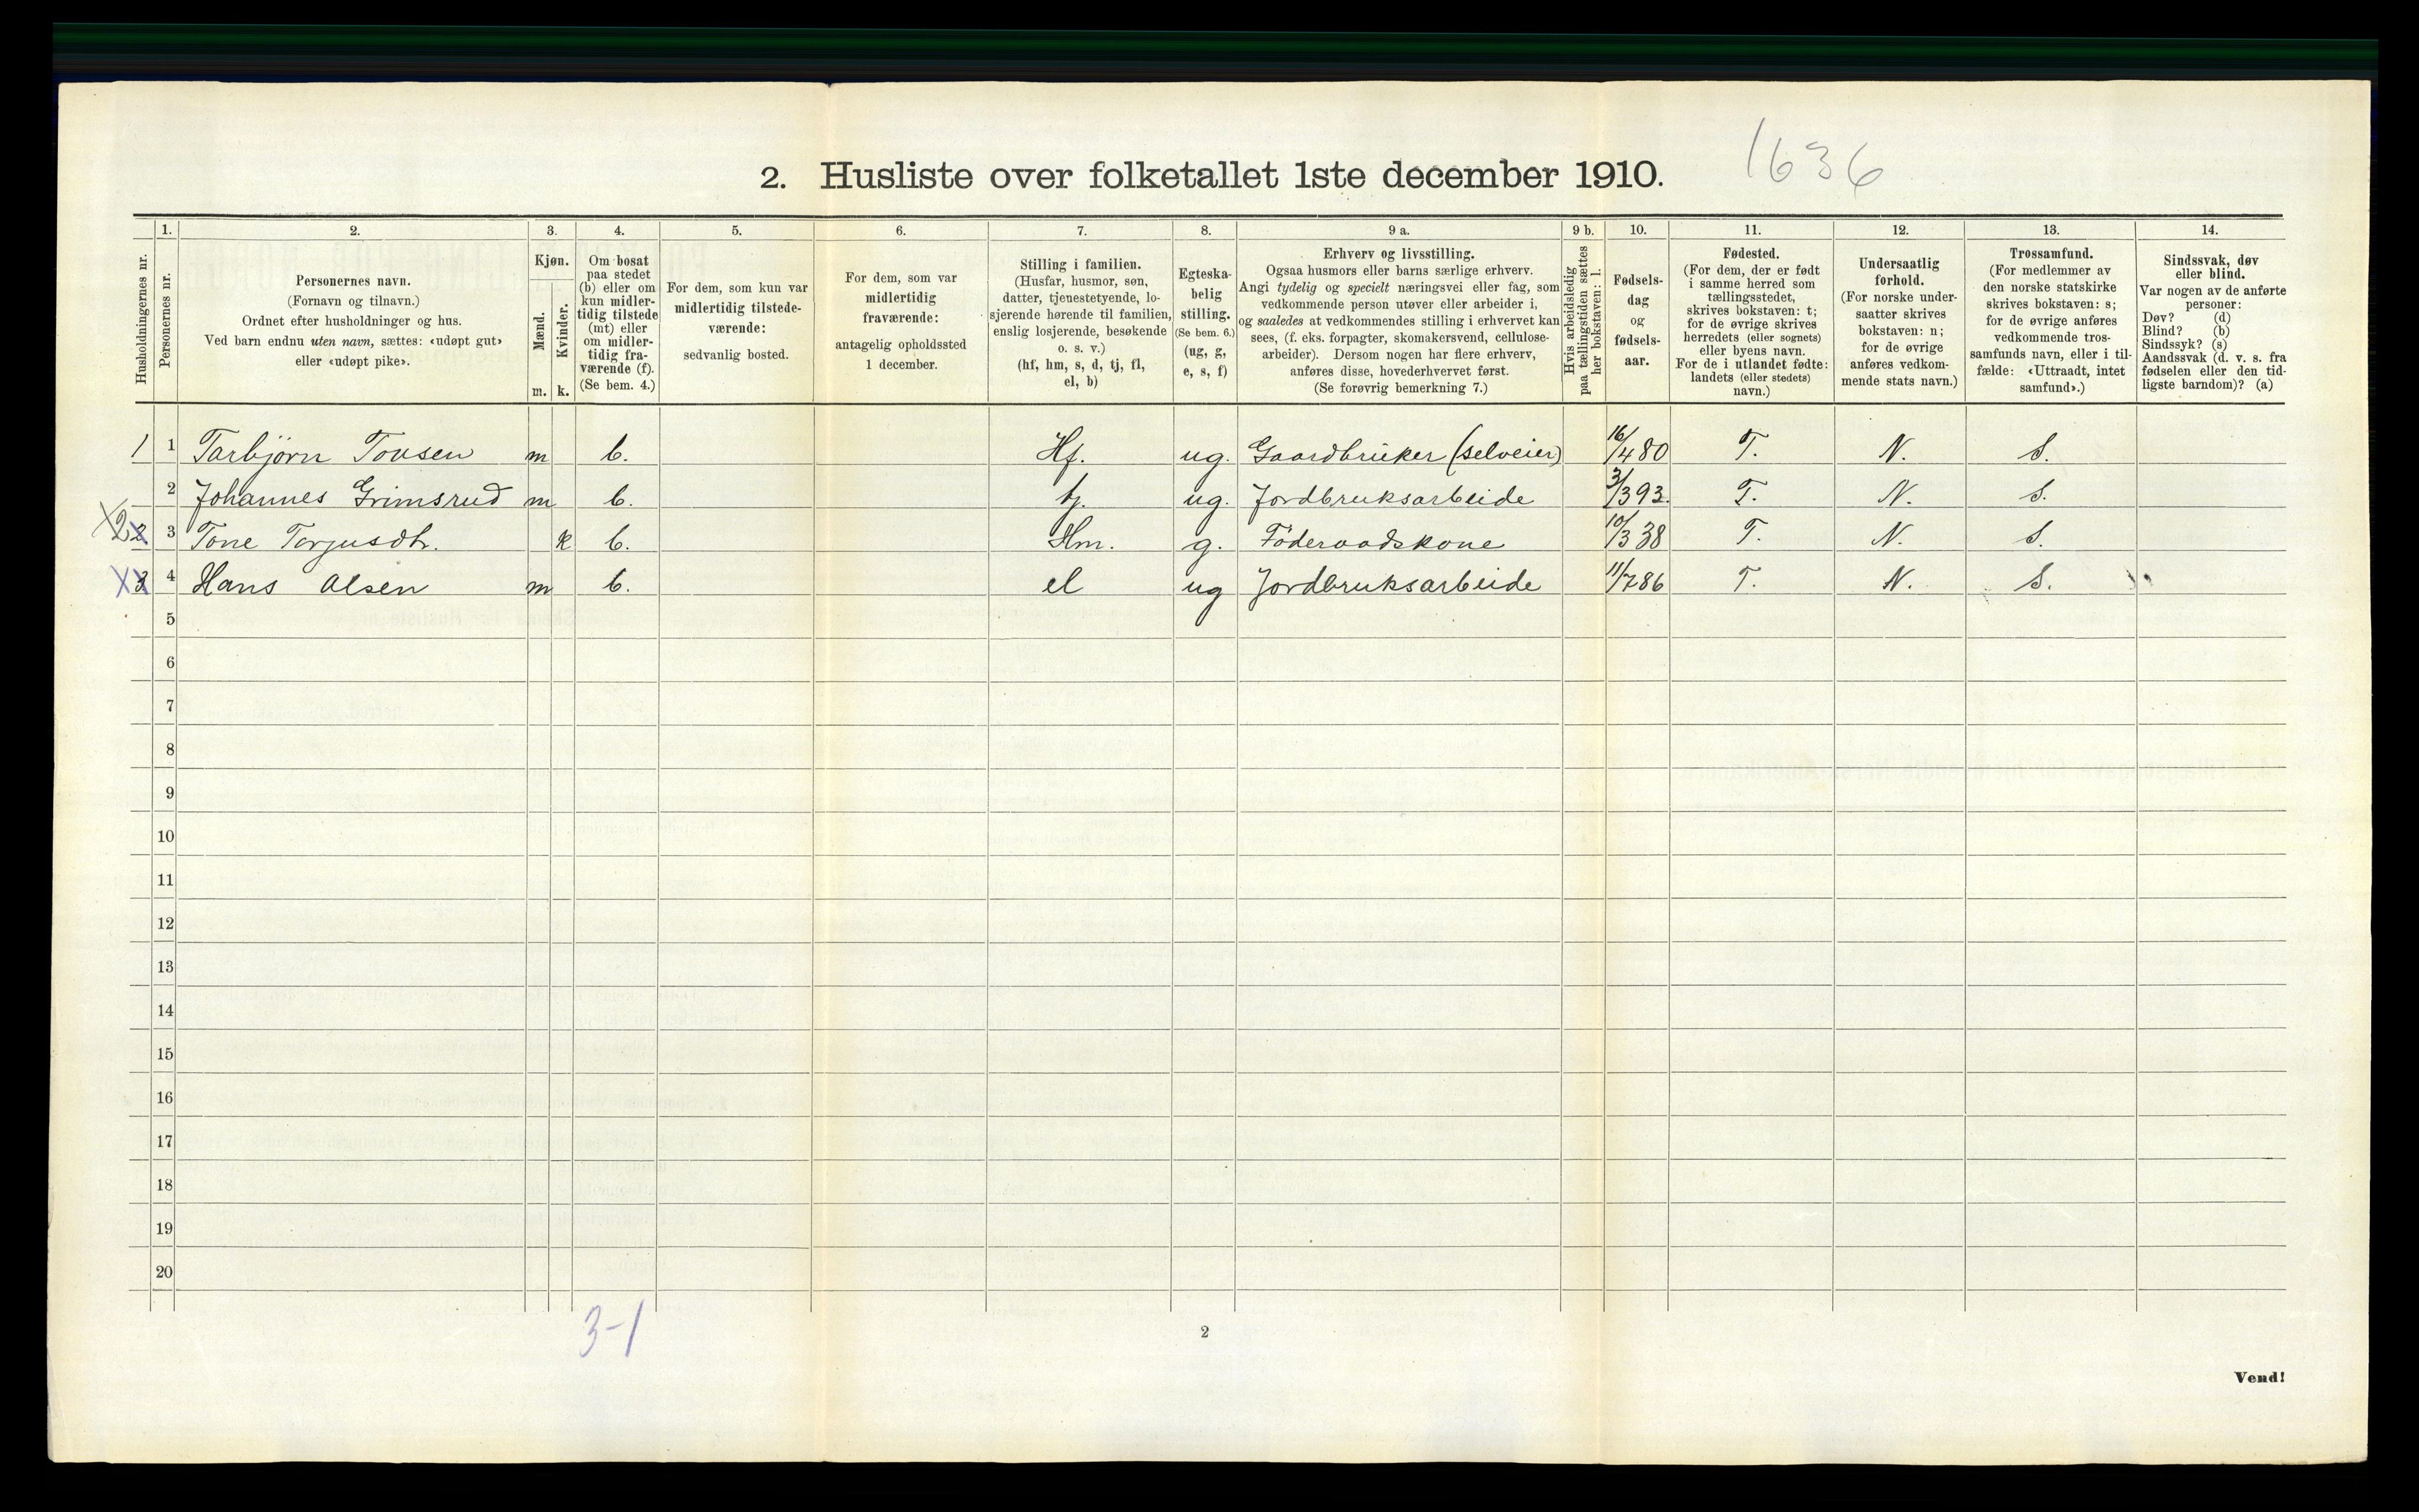 1636
2. Husliste over folketallet 1ste december 1910.
Husholdningernes nr.
1.
Personernes nr.
2.
Personernes navn.
(Fornavn og tilnavn.)
Ordnet efter husholdninger og hus.
Ved barn endnu uten navn, sættes: «udøpt gut»
eller «udøpt pike».
3.
Kjøn.
Mænd.
m.
Kvinder.
k.
4.
Om bosat
paa stedet
(b) eller om
kun midler-
tidig tilstede
(mt) eller
om midler-
tidig fra-
værende (f).
(Se bem. 4.)
5.
For dem, som kun var
midlertidig tilstede-
værende:
sedvanlig bosted.
6.
For dem, som var
midlertidig
fraværende:
antagelig opholdssted
1 december.
7.
Stilling i familien.
(Husfar, husmor, søn,
datter, tjenestetyende, lo-
sjerende hørende til familien,
enslig losjerende, besøkende
o. s. v.)
(hf, hm, s, d, tj, fl,
el, b)
8.
Egteska-
belig
stilling.
(Se bem. 6.)
(ug, g,
e, s, f)
9 a.
Erhverv og livsstilling.
Ogsaa husmors eller barns særlige erhverv.
Angi tydelig og specielt næringsvei eller fag, som
vedkommende person utøver eller arbeider i,
og saaledes at vedkommendes stilling i erhvervet kan
sees, (f. eks. forpagter, skomakersvend, cellulose-
arbeider). Dersom nogen har flere erhverv,
anføres disse, hovederhvervet først.
(Se forøvrig bemerkning 7.)
9 b.
Hvis arbeidsledig
paa tællingstiden sættes
her bokstaven: l.
10.
Fødsels-
dag
og
fødsels-
aar.
11.
Fødested.
(For dem, der er født
i samme herred som
tællingsstedet,
skrives bokstaven: t;
for de øvrige skrives
herredets (eller sognets)
eller byens navn.
For de i utlandet fødte:
landets (eller stedets)
navn.)
12.
Undersaatlig
forhold.
(For norske under-
saatter skrives
bokstaven: n;
for de øvrige
anføres vedkom-
mende stats navn.)
13.
Trossamfund.
(For medlemmer av
den norske statskirke
skrives bokstaven: s;
for de øvrige anføres
vedkommende tros-
samfunds navn, eller i til-
fælde: «Uttraadt, intet
samfund».)
14.
Sindssvak, døv
eller blind.
Var nogen av de anførte
personer:
Døv? (d)
Blind? (b)
Sindssyk? (s)
Aandssvak (d. v. s. fra
fødselen eller den tid-
ligste barndom)? (a)
1 1 Tarbjörn Tovsen m b. Hf. ug. Gaardbruker (selveier) 16/4 80 T. N. S.
2 Johannes Grimsrud m b. tj. ug. Jordbruksarbeide 3/3 93. T. N. S.
2 3 Tone Torjusdtr. k b. Hm. g. Föderaadskone 10/3 38 T. N. S.
3 4 Hans Olsen m b. el ug Jordbruksarbeide 11/7 86 T. N. S.
5
6
7
8
9
10
11
12
13
14
15
16
17
18
19
20
3-1
2
Vend!